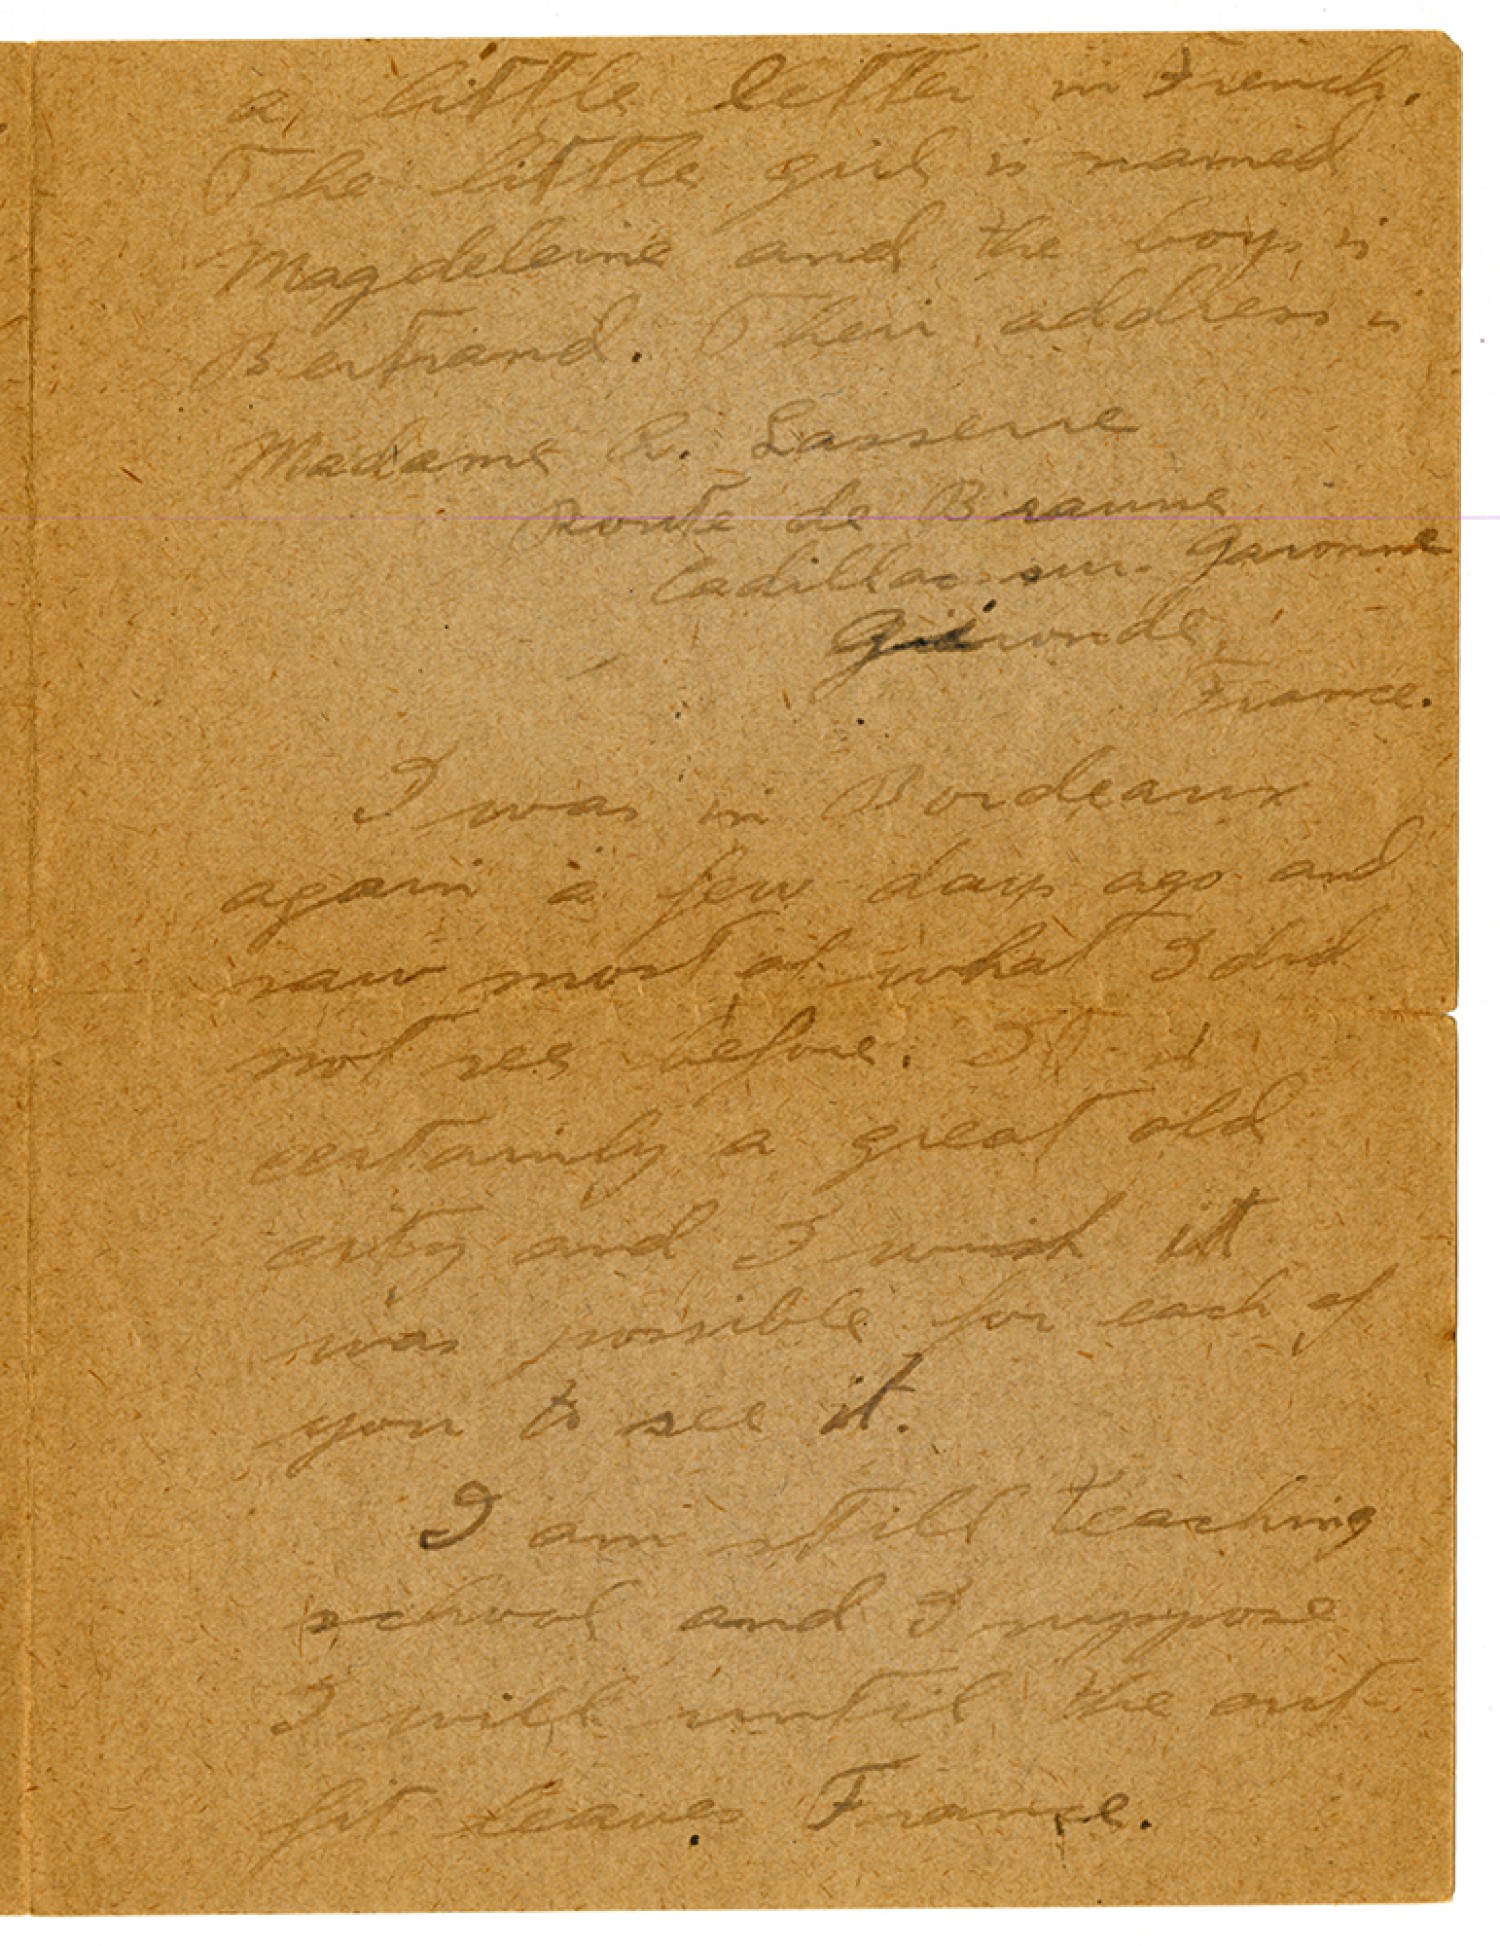 a little letter in French.
The little girl is named
Magdeleine and the boys is
Bertrand. Their address is
Madame R. Lasserre
Route de Branne
Cadillac sur Garonne
Gironde
France.
I was in Bordeaux
again a few days ago and
saw most of what I did
not see before. It is
certainly a great old
city and I wish it
was possible for each of
you to see it.
I am still teaching
school and I suppose
I will until the out-
fit leaves France.